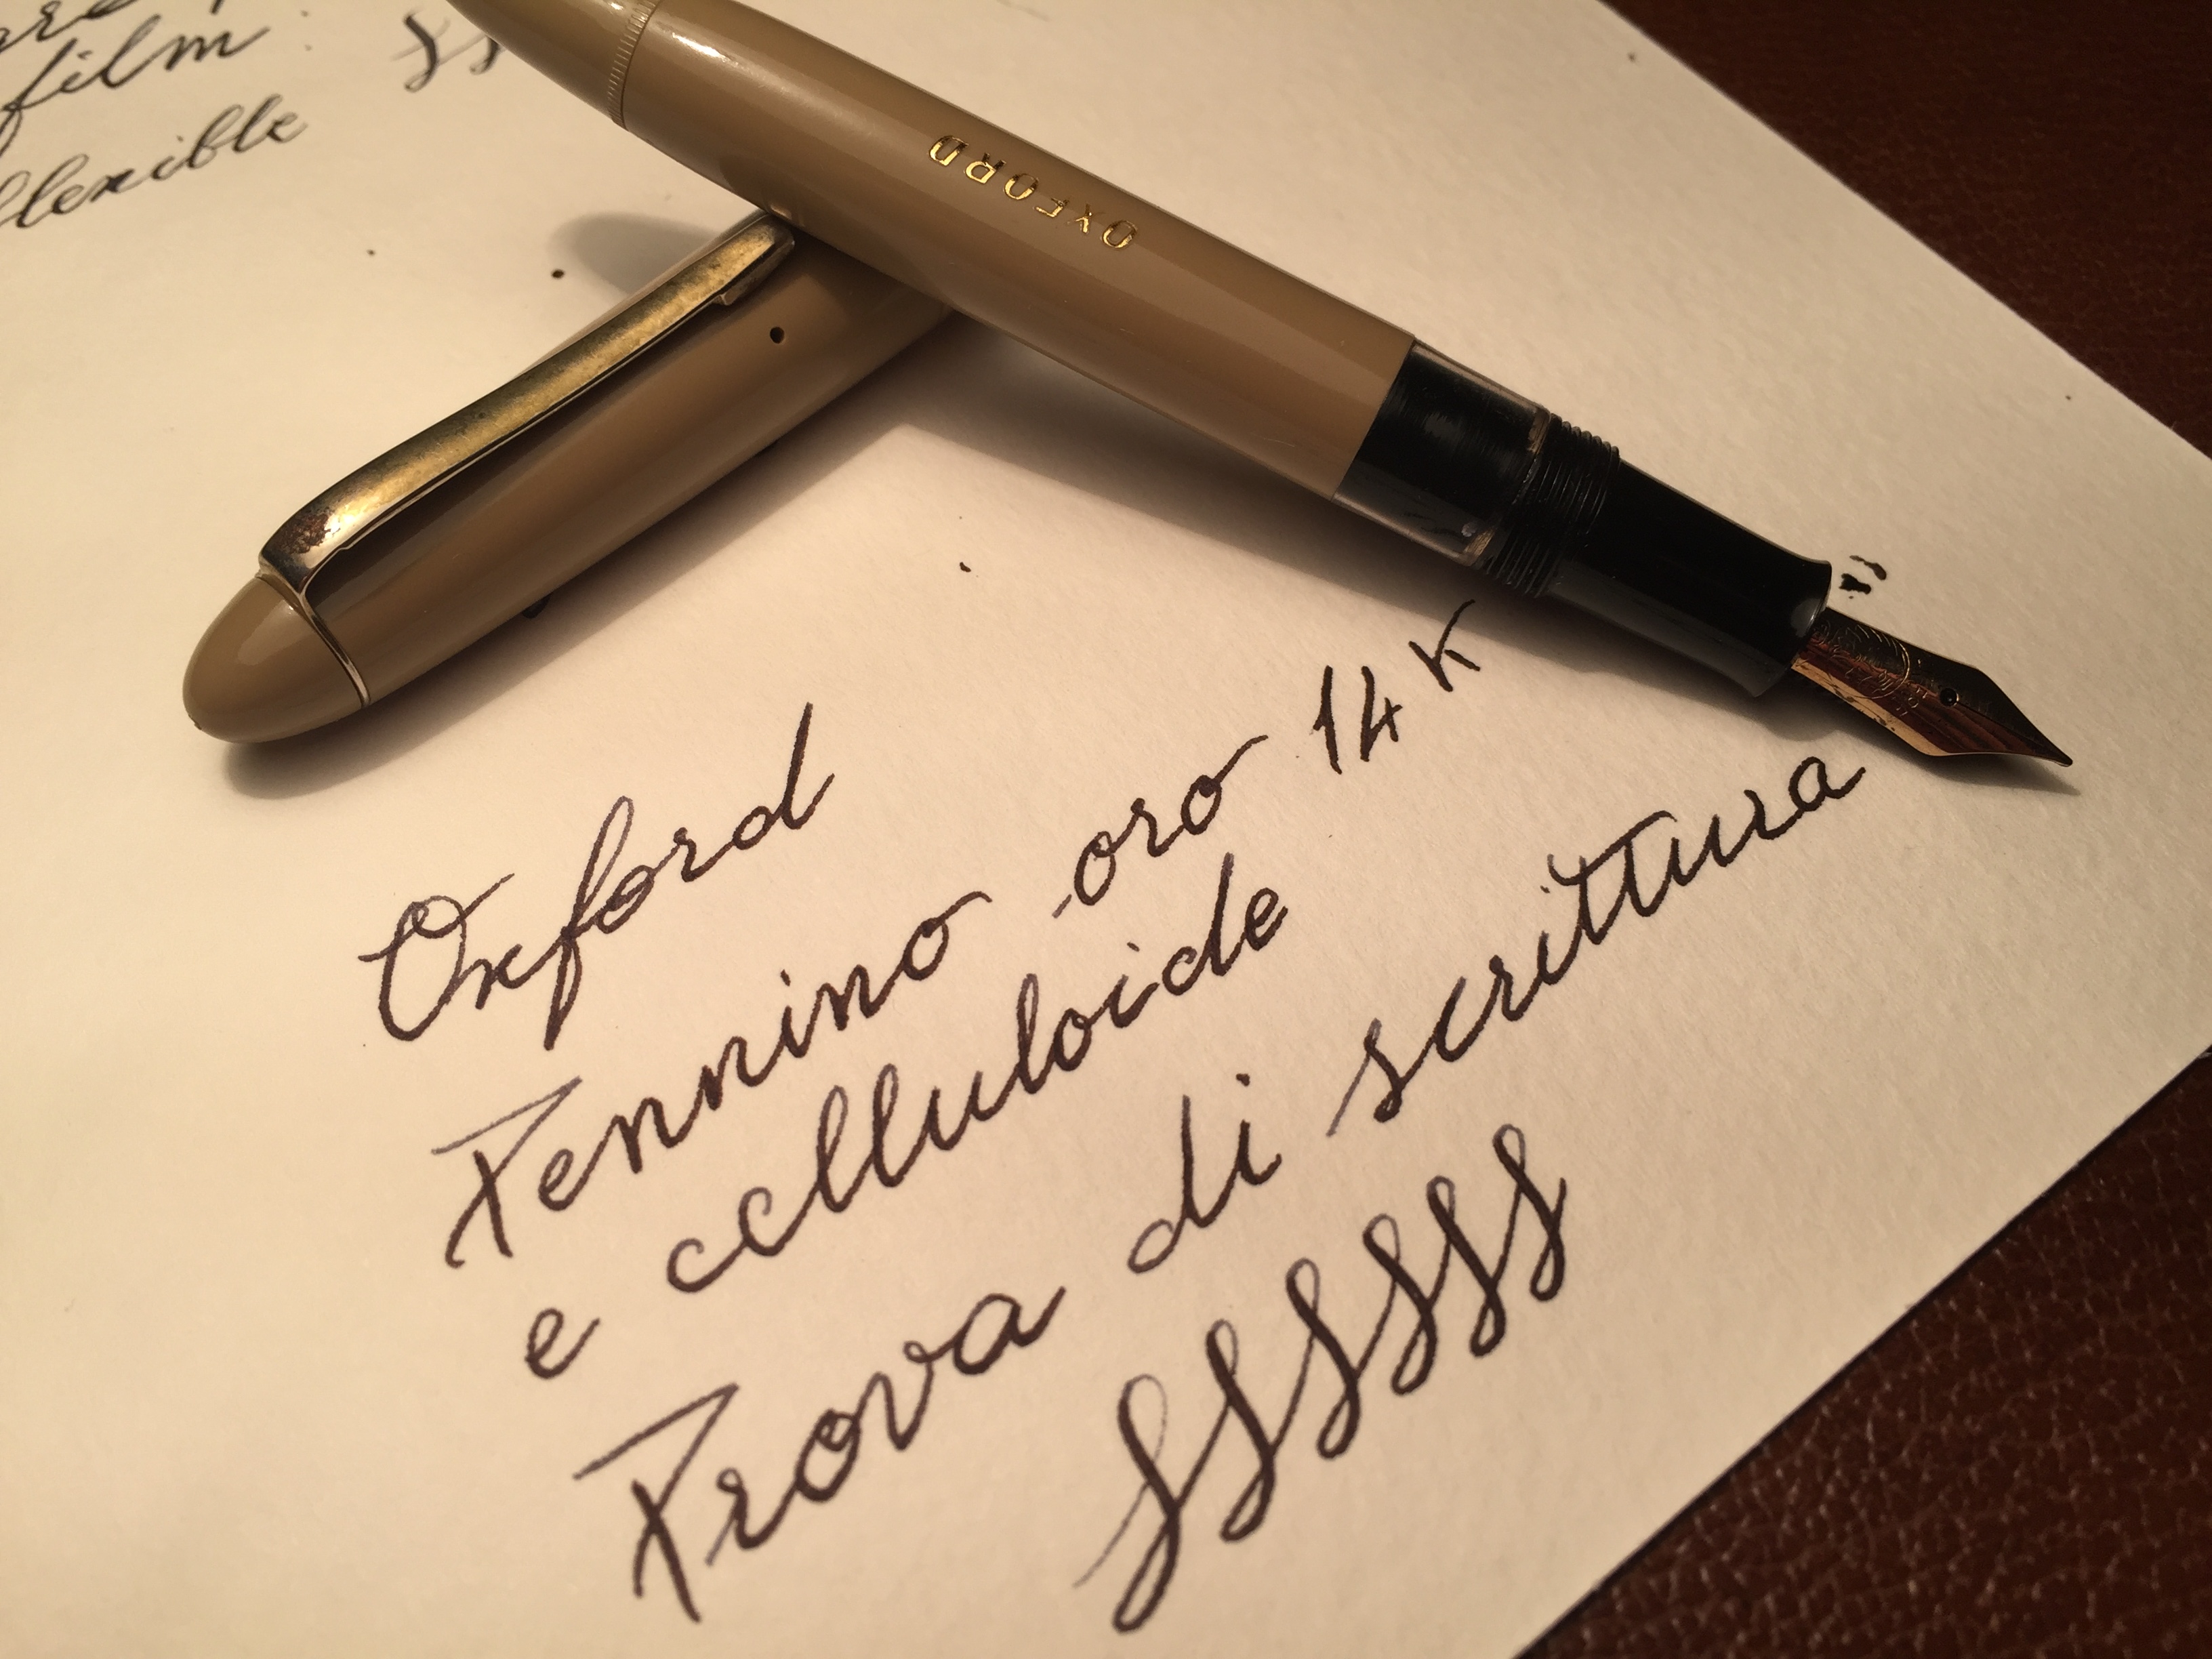 film
flexible
OXFORD
Oxford
Pennino oro 14 K
e celluloide
Prova di scrittura
SSSSSS